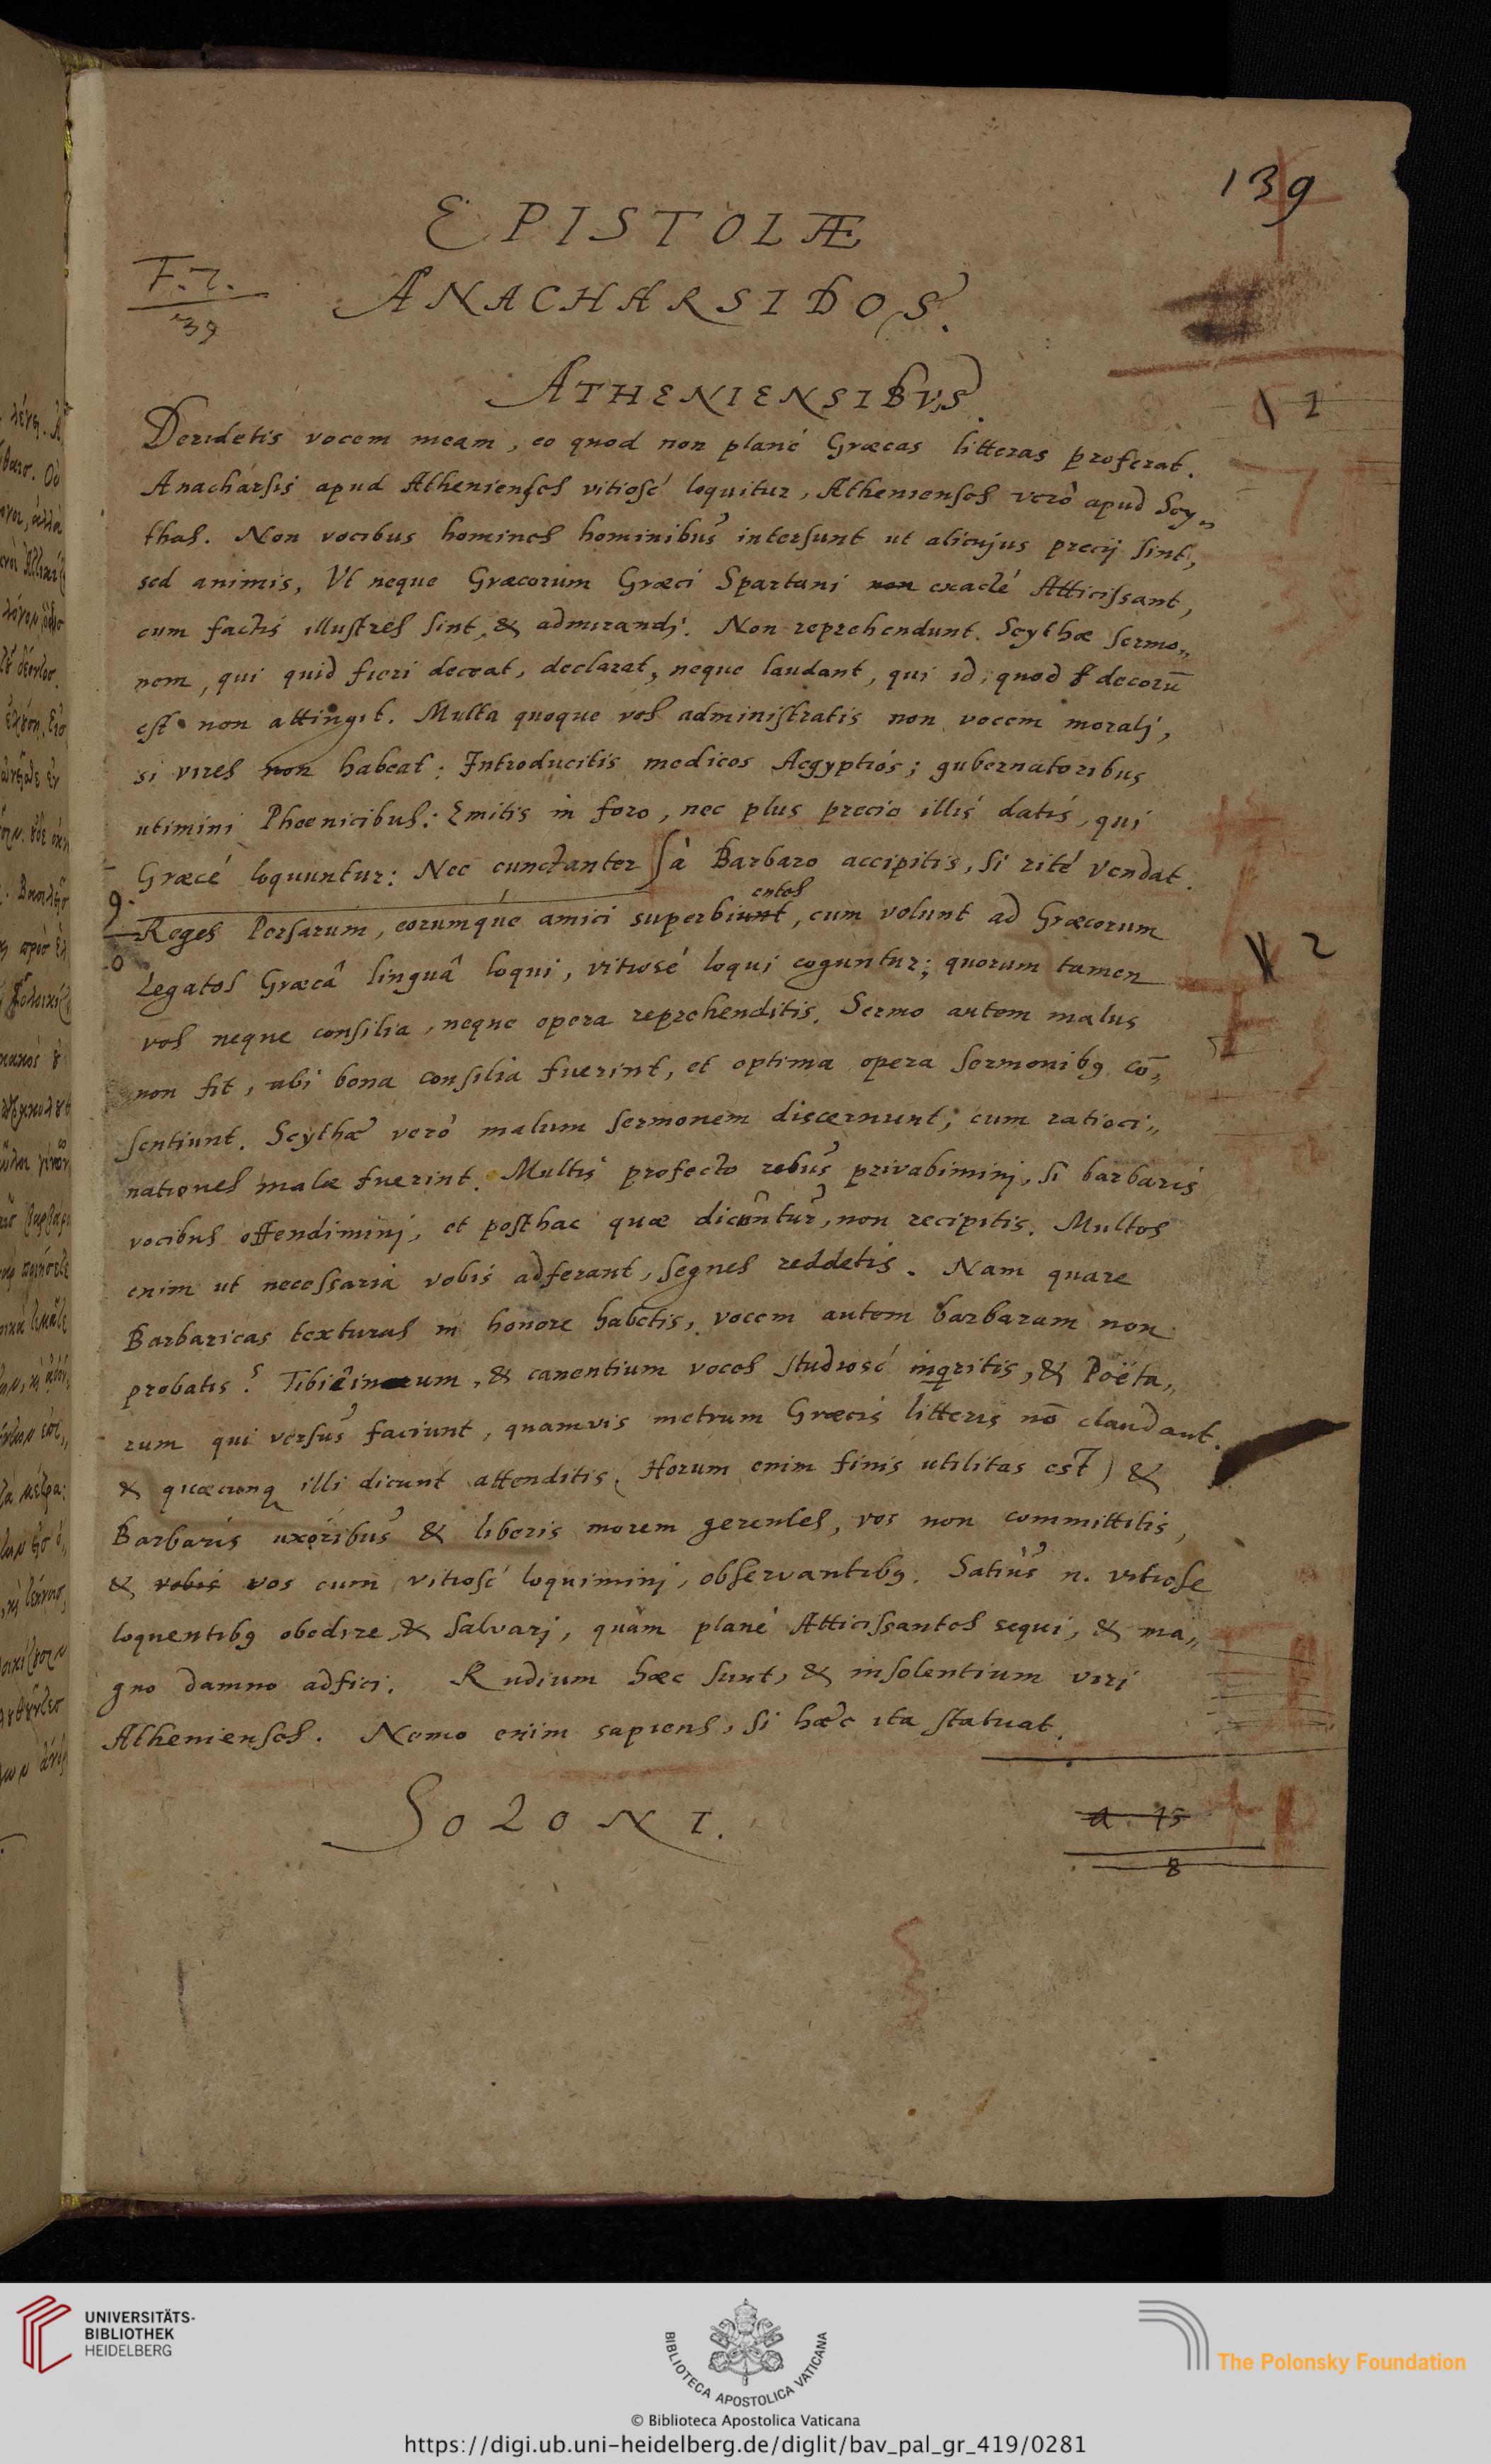 139
EPISTOLÆ
F. 7.
39
ANACHARSIDOS.
ATHENIENSIBVS.
1
Deridetis vocem meam, eo quod non planè Græcas litteras proferat.
Anacharsis apud Athenienses vitiosè loquitur, Athenienses verò apud Scy„
thas. Non vocibus homines hominibus intersunt ut alicujus precij sint,
sed animis, Ut neque Græcorum Græci Spartani non exactè Atticissant,
cum factis illustres sint, & admirandj. Non reprehendunt Scythæ sermo„
nem, qui quid fieri deceat, declarat, neque laudant, qui id, quod decorū
est non attingit. Multa quoque vos administratis non vocem moratj,
si vires non habeat: Introducitis medicos Aegyptios; gubernatoribus
utimini Phœnicibus: Emitis in foro, nec plus precio illis datis, qui
Græcè loquuntur: Nec cunctanter à Barbaro accipitis, si ritè vendat.
9.
entes
Reges Persarum, eorumque amici superbiunt, cum volunt ad Græcorum
2
Legatos Græcâ linguâ loqui, vitiosè loqui coguntur; quorum tamen
vos neque consilia, neque opera reprehenditis. Sermo autem malus
non fit, ubi bona consilia fuerint, et optima opera sermonibꝰ cō„
sentiunt. Scythæ verò malum sermonem discernunt, cum ratioci„
nationes malæ fuerint. Multis profecto rebus privabiminj, si barbaris
vocibus offendiminj, et posthac quæ dicuntur, non recipitis. Multos
enim ut necessaria vobis adferant, segnes reddetis. Nam quare
Barbaricas texturas in honore habetis, vocem autem barbaram non
probatis? Tibicinum, & canentium voces studiosè inqritis, & Poëta„
rum qui versus faciunt, quamvis metrum Græcis litteris nō claudant.
& quæcunq illi dicunt attenditis (Horum enim finis utilitas est) &
Barbaris uxoribus & liberis morem gerentes, vos non committitis,
& vobis vos cum vitiosè loquiminj, observantibꝰ. Satius n. vitiose
loquentibꝰ obedire, & salvarj, quàm planè Atticissantes sequi, & ma„
gno damno adfici. Rudium hæc sunt, & insolentium viri
Athenienses. Nemo enim sapiens, si hæc ita statuat.
SOLONI.
a. 15
8
UNIVERSITÄTS-
BIBLIOTHEK
HEIDELBERG
BIBLIOTECA APOSTOLICA VATICANA
The Polonsky Foundation
© Biblioteca Apostolica Vaticana
https://digi.ub.uni-heidelberg.de/diglit/bav_pal_gr_419/0281